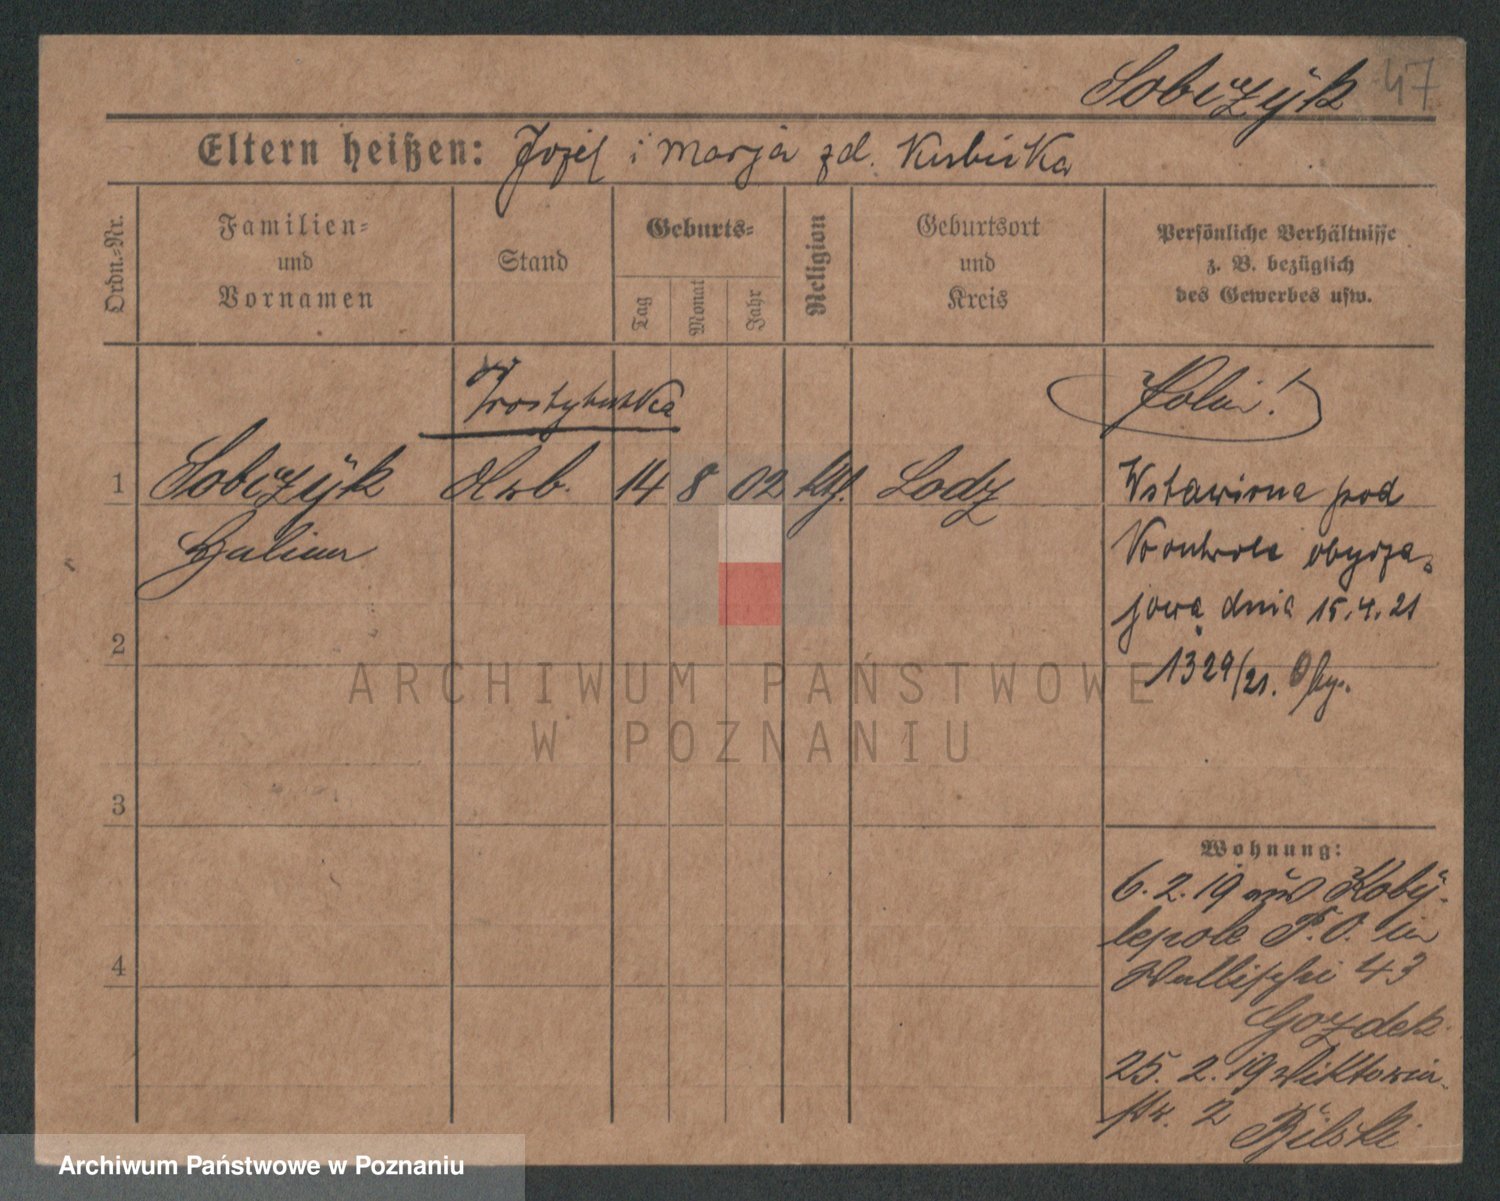 Sobczyk 47
Eltern heißen: Jozef i Marja zd. Kubicka
Ordn.-Nr.
Familien-
und
Vornamen
Stand
Geburts-
Tag
Monat
Jahr
Religion
Geburtsort
und
Kreis
Persönliche Verhältnisse
z. B. bezüglich
des Gewerbes usw.
Prostytutka
Polin!
1 Sobczyk 14 8 02 kth. Lodz
Halina
Wstawiona pod
Kontrole obycza-
jową dnia 15.4.21
1329/21.
2
3
4
Wohnung:
6.2.19 aus Koby-
lepole P.O. in
Wallischei 43
Gozdek
25.2.19 Wiktoria-
str. 2
Bilski
ARCHIWUM PAŃSTWOWE
W POZNANIU
Archiwum Państwowe w Poznaniu